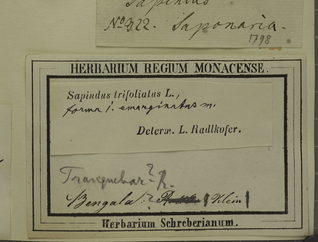 Sapindus
No. 322. Saponaria.
1798
HERBARIUM REGIUM MONACENSE.
Sapindus trifoliatus L.,
forma 1. emarginatus m.
Determ. L. Radlkofer.
Tranquebar? R.
Bengala? Klein
Herbarium Schreberianum.